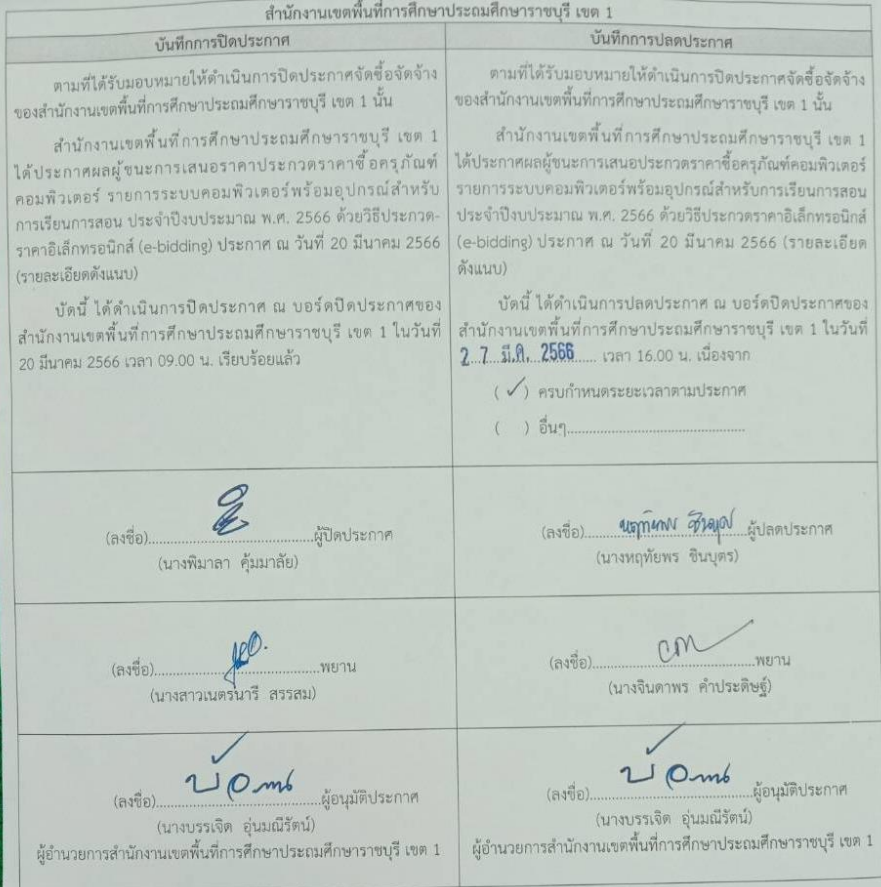 สำนักงานเขตพื้นที่การศึกษาประถมศึกษาราชบุรี เขต 1
บันทึกการปิดประกาศ
ตามที่ได้รับมอบหมายให้ดำเนินการปิดประกาศจัดซื้อจัดจ้าง
ของสำนักงานเขตพื้นที่การศึกษาประถมศึกษาราชบุรี เขต 1 นั้น
สำนักงานเขตพื้นที่การศึกษาประถมศึกษาราชบุรี เขต 1
ได้ประกาศผลผู้ชนะการเสนอราคาประกวดราคาซื้อครุภัณฑ์
คอมพิวเตอร์ รายการระบบคอมพิวเตอร์พร้อมอุปกรณ์สำหรับ
การเรียนการสอน ประจำปีงบประมาณ พ.ศ. 2566 ด้วยวิธีประกวด-
ราคาอิเล็กทรอนิกส์ (e-bidding) ประกาศ ณ วันที่ 20 มีนาคม 2566
(รายละเอียดดังแนบ)
บัดนี้ ได้ดำเนินการปิดประกาศ ณ บอร์ดปิดประกาศของ
สำนักงานเขตพื้นที่การศึกษาประถมศึกษาราชบุรี เขต 1 ในวันที่
20 มีนาคม 2566 เวลา 09.00 น. เรียบร้อยแล้ว
(ลงชื่อ)..............................ผู้ปิดประกาศ
(นางพิมาลา คุ้มมาลัย)
(ลงชื่อ)..............................พยาน
(นางสาวเนตรนารี สรรสม)
(ลงชื่อ)..............................ผู้อนุมัติประกาศ
(นางบรรเจิด อุ่นมณีรัตน์)
ผู้อำนวยการสำนักงานเขตพื้นที่การศึกษาประถมศึกษาราชบุรี เขต 1
บันทึกการปลดประกาศ
ตามที่ได้รับมอบหมายให้ดำเนินการปิดประกาศจัดซื้อจัดจ้าง
ของสำนักงานเขตพื้นที่การศึกษาประถมศึกษาราชบุรี เขต 1 นั้น
สำนักงานเขตพื้นที่การศึกษาประถมศึกษาราชบุรี เขต 1
ได้ประกาศผลผู้ชนะการเสนอประกวดราคาซื้อครุภัณฑ์คอมพิวเตอร์
รายการระบบคอมพิวเตอร์พร้อมอุปกรณ์สำหรับการเรียนการสอน
ประจำปีงบประมาณ พ.ศ. 2566 ด้วยวิธีประกวดราคาอิเล็กทรอนิกส์
(e-bidding) ประกาศ ณ วันที่ 20 มีนาคม 2566 (รายละเอียด
ดังแนบ)
บัดนี้ ได้ดำเนินการปลดประกาศ ณ บอร์ดปิดประกาศของ
สำนักงานเขตพื้นที่การศึกษาประถมศึกษาราชบุรี เขต 1 ในวันที่
2 7 มี.ค. 2566 เวลา 16.00 น. เนื่องจาก
( ✓ ) ครบกำหนดระยะเวลาตามประกาศ
( ) อื่นๆ..............................
(ลงชื่อ) หฤทัยพร ชินบุตร ผู้ปลดประกาศ
(นางหฤทัยพร ชินบุตร)
(ลงชื่อ)..............................พยาน
(นางจินดาพร คำประดิษฐ์)
(ลงชื่อ)..............................ผู้อนุมัติประกาศ
(นางบรรเจิด อุ่นมณีรัตน์)
ผู้อำนวยการสำนักงานเขตพื้นที่การศึกษาประถมศึกษาราชบุรี เขต 1